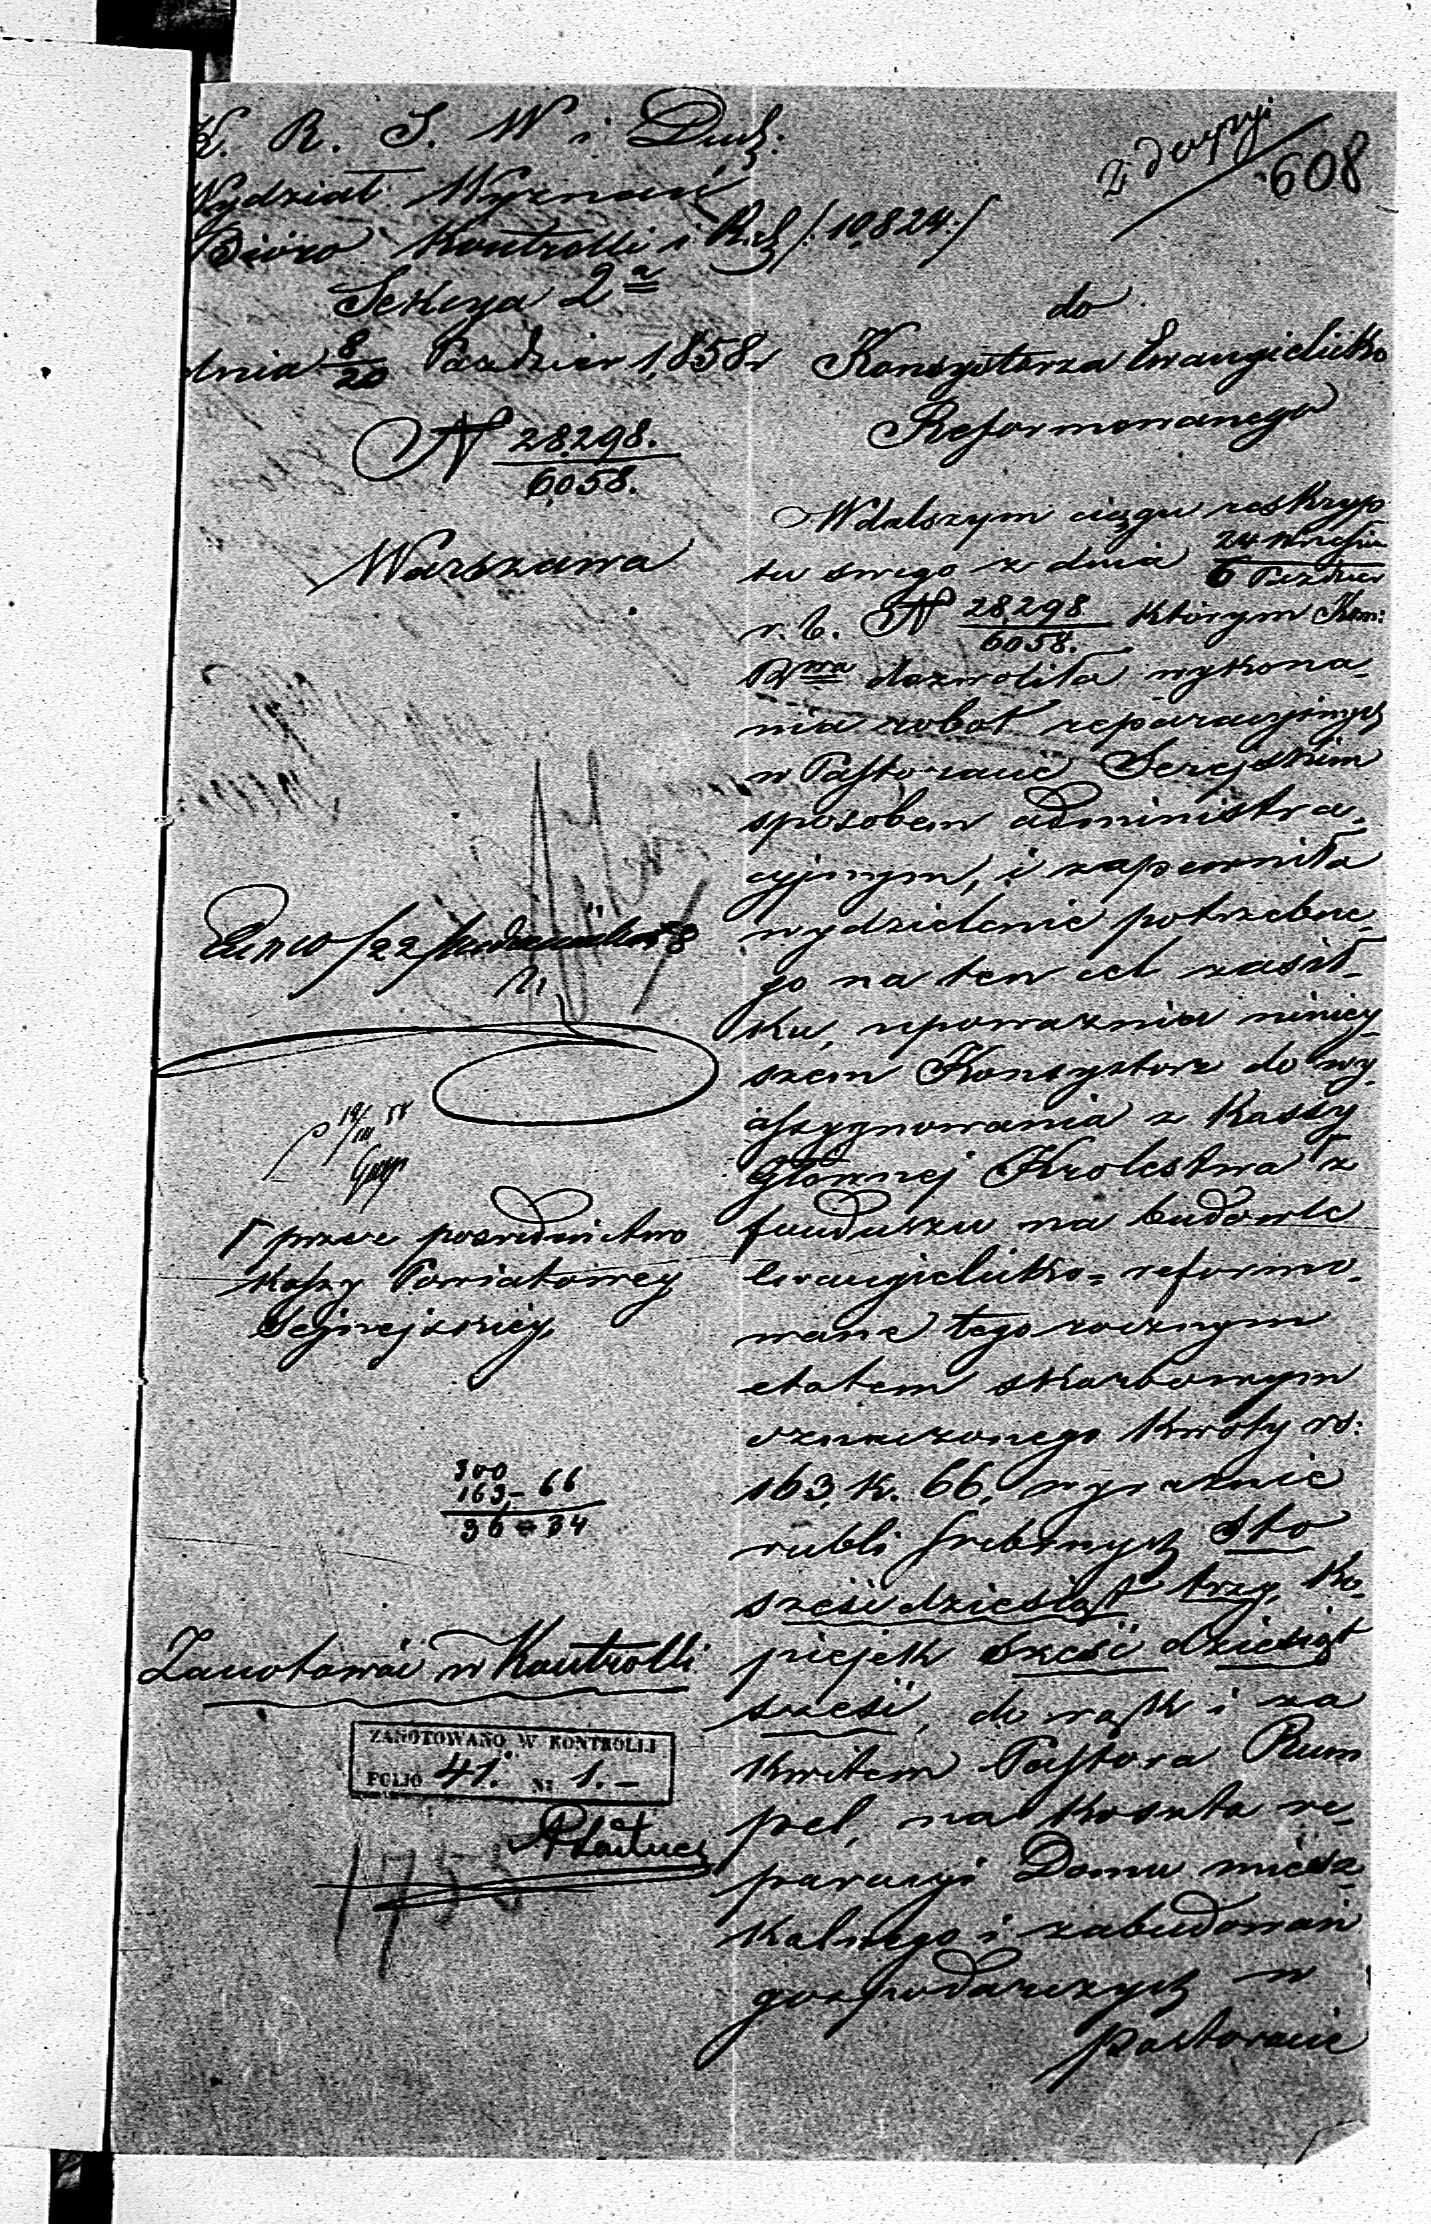 K. R. S. W i Duch:
Wydział Wyznań
Bióro Kontrolli i Rach /:10,824:/
Sekcya 2ª
dnia 8/20 Paździer 1,858 r
N 28,298./6,058.
Warszawa
608
do
Konsystorza Ewangielicko
Reformowanego
W dalszym ciągu reskryp
tu swego z dnia 24 Wrześni/6 Paździer
r. b. N 28,298/6058. którym Kom:
Rwa dozwoliła wykona-
nia robót reparacyjnych
w Pastoracie Serejskim
sposobem administra-
cyjnym, i zapewniła
wydzielenie potrzebne-
go na ten cel zasił-
ku, upoważnia niniey-
szem Konsystorz do wy-
assygnowania z Kassy
Głównej Krolestwa z
funduszu na budowle
Ewangielicko-reformo-
wane tego rocznym
etatem skarbowym
oznaczonego kwoty rs:
163, k. 66, wyraznie
rubli srebrnych Sto
sześćdziesiąt trzy, ko-
piejek sześć dziesiąt
sześć, do rąk i za
kwitem Pastora Rum
pel, na koszta re-
paracyi Domu miesz-
kalnego i zabudowań
gospodarczych w
pastoracie
przez posrednictwo
Kassy Powiatowey
Sejneyskiey
300
163,- 66
36 = 34
Zanotować w Kontrolli
ZANOTOWANO W KONTROLLI
FOLIO 41. Nr 1.-